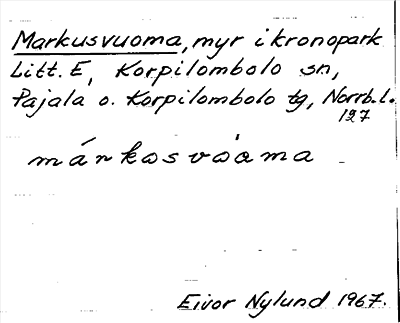 Markusvuoma, myr i kronopark
Litt. E, Korpilombolo sn,
Pajala o. Korpilombolo tg, Norrb. l.
127
márkosvòoma
Eivor Nylund 1967.